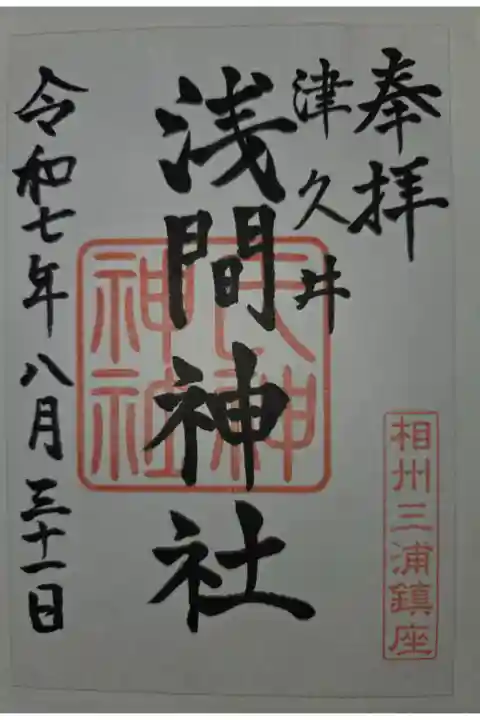 奉拝
津久井
浅間神社
令和七年八月三十一日
天神
神社
相州三浦鎮座